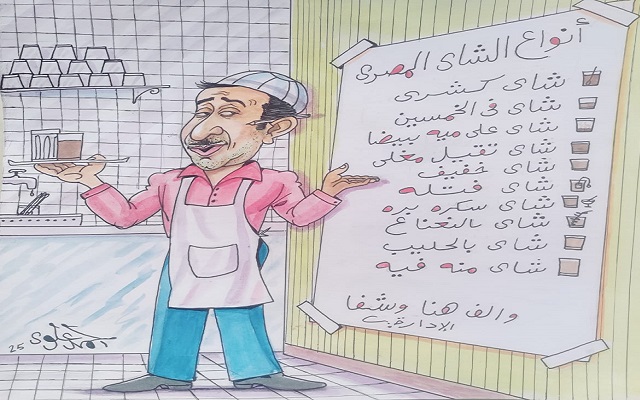 أنواع الشاى المصرى
شاى كشرى
شاى فى الخمسين
شاى على ميه بيضا
شاى تقيل مغلى
شاى خفيف
شاى فتله
شاى سكره بره
شاى بالنعناع
شاى بالحليب
شاى منه فيه
والف هنا وشفا
الادارة
25